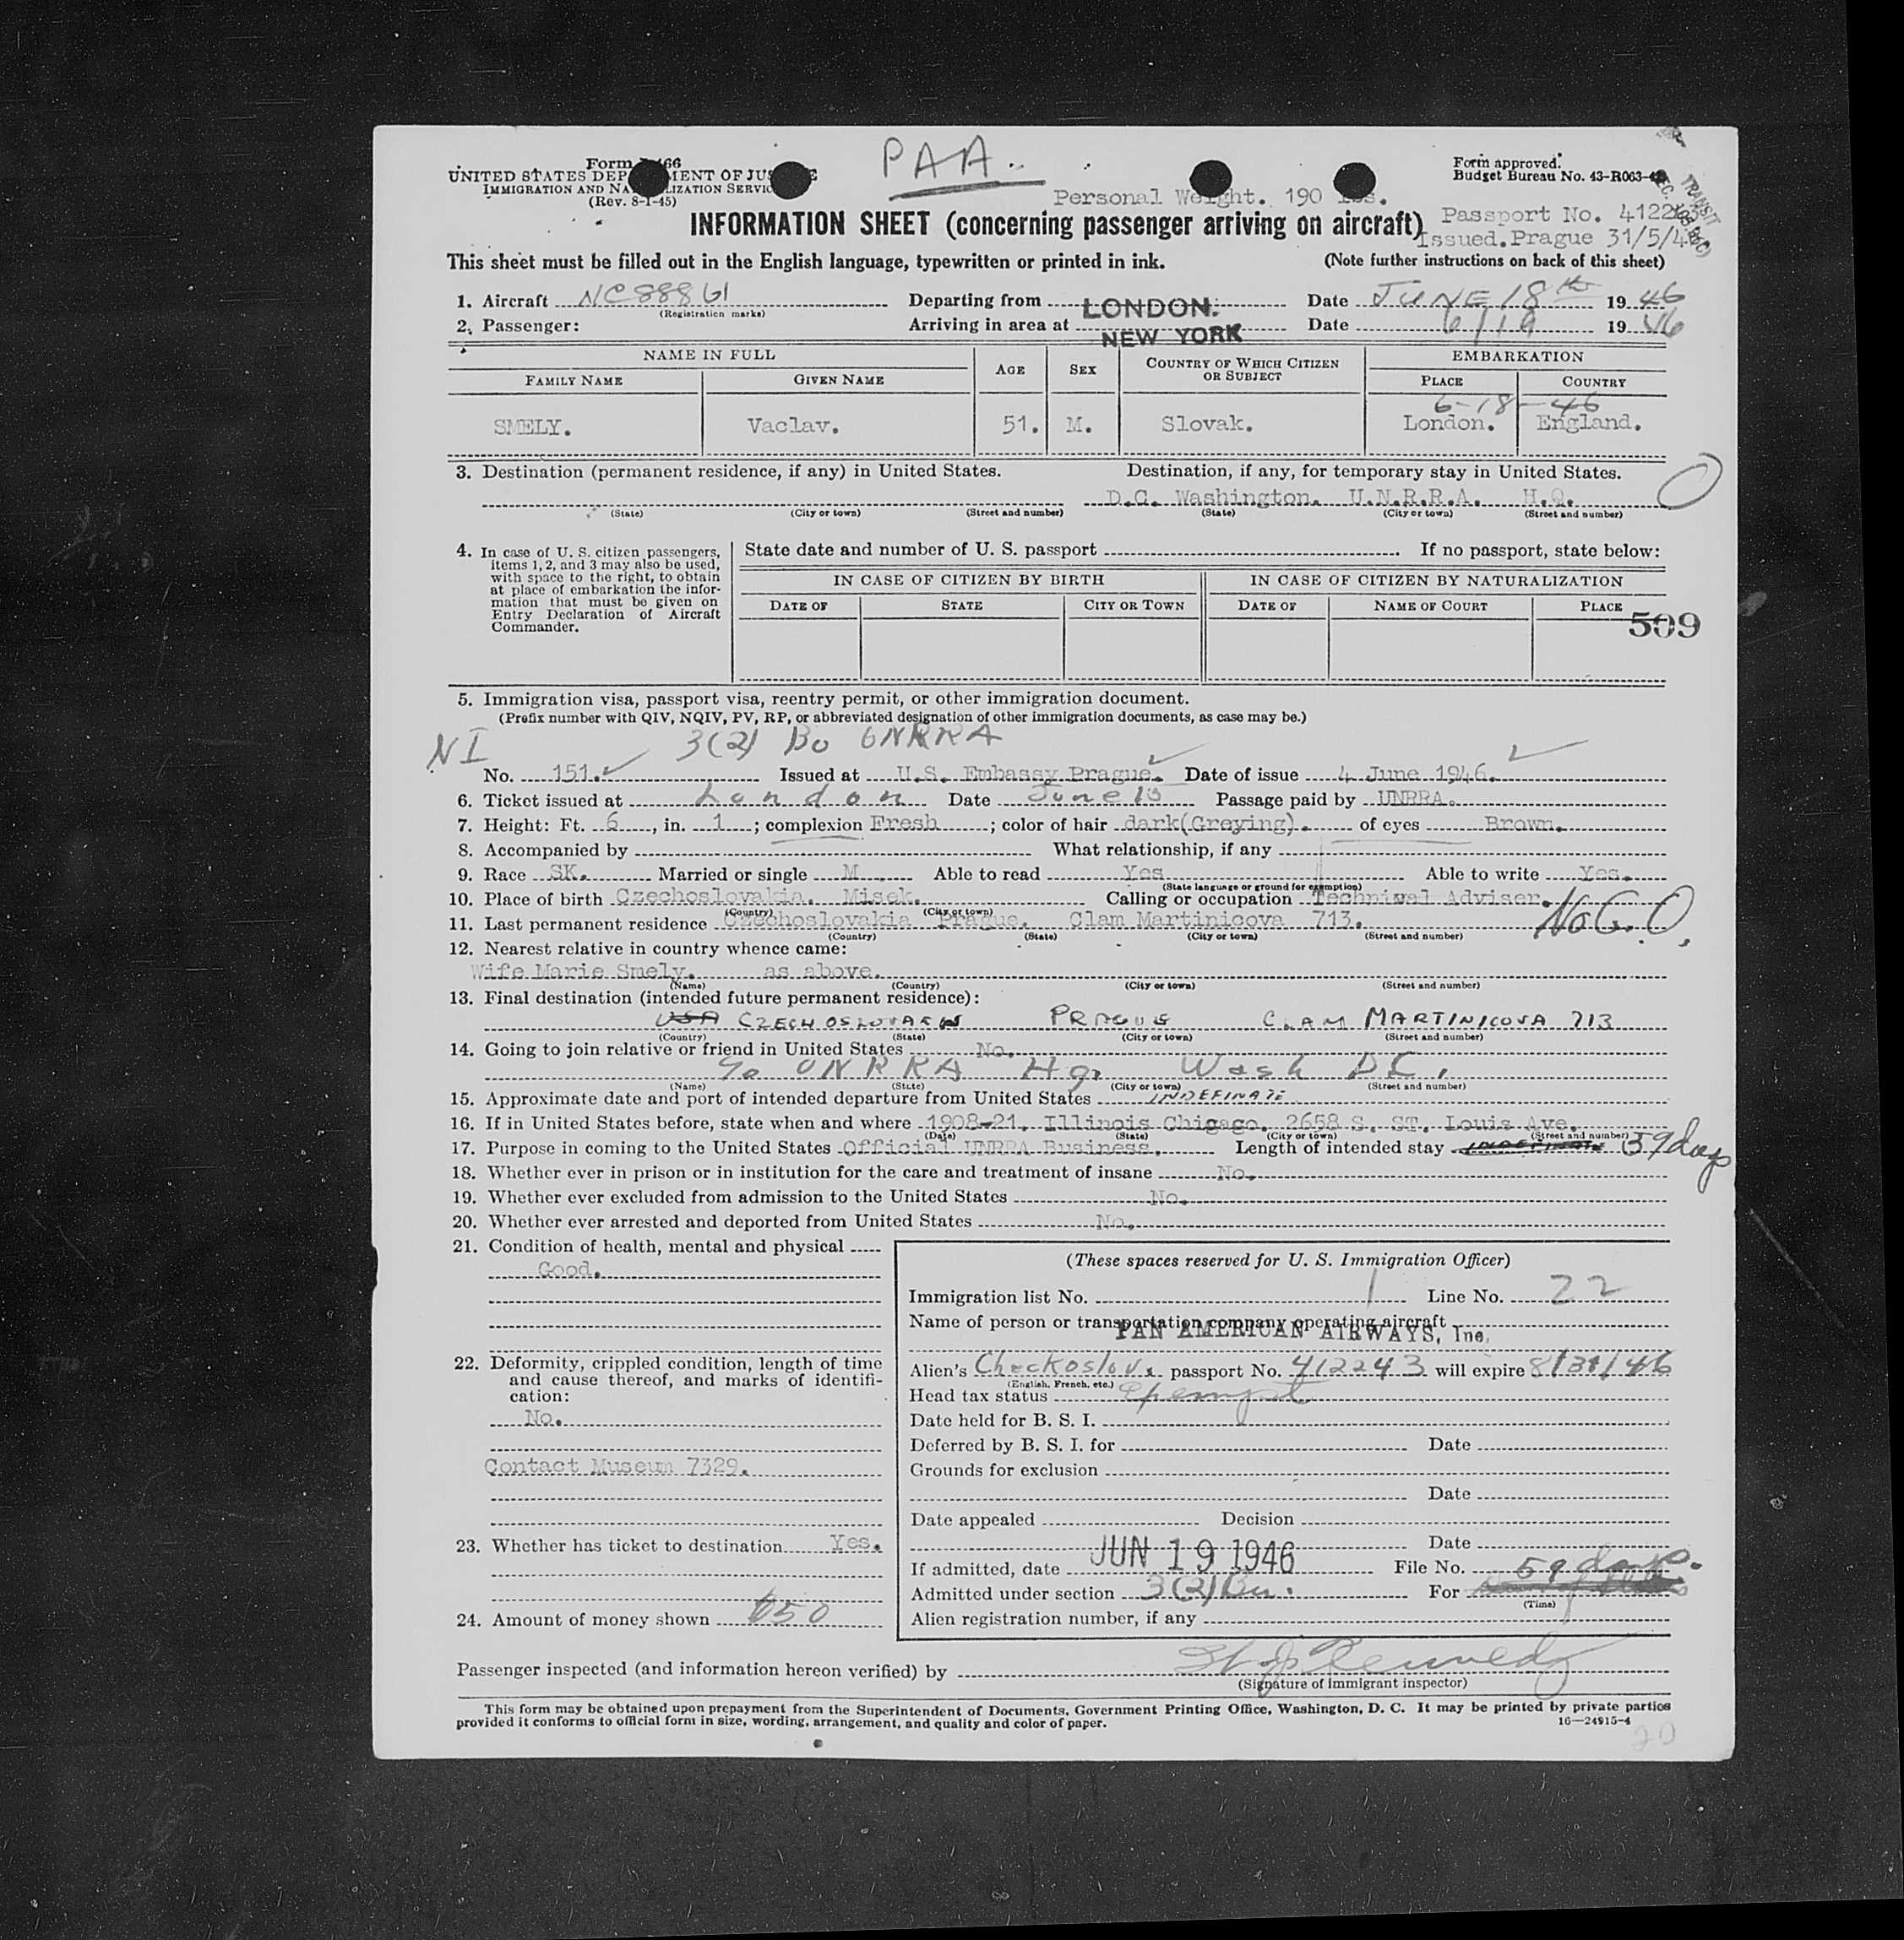 PAA
Form 466
UNITED STATES DEPARTMENT OF JUSTICE
IMMIGRATION AND NATURALIZATION SERVICE
(Rev. 8-1-45)
Form approved.
Budget Bureau No. 43-R063-
Personal Weight. 190 lbs.
INFORMATION SHEET (concerning passenger arriving on aircraft)
Passport No. 412243
Issued.Prague 31/5/46
TRANSIT
This sheet must be filled out in the English language, typewritten or printed in ink. (Note further instructions on back of this sheet)
1. Aircraft NC88861 Departing from LONDON. Date JUNE 18th 1946
(Registration marks)
2. Passenger: Arriving in area at NEW YORK Date 6/19 1946
NAME IN FULL AGE SEX COUNTRY OF WHICH CITIZEN OR SUBJECT EMBARKATION
FAMILY NAME GIVEN NAME PLACE COUNTRY
6-18-46
SMELY. Vaclav. 51. M. Slovak. London. England.
3. Destination (permanent residence, if any) in United States. Destination, if any, for temporary stay in United States.
D.C. Washington. U.N.R.R.A. H.Q.
(State) (City or town) (Street and number) (State) (City or town) (Street and number)
4. In case of U. S. citizen passengers, items 1, 2, and 3 may also be used, with space to the right, to obtain at place of embarkation the information that must be given on Entry Declaration of Aircraft Commander.
State date and number of U. S. passport If no passport, state below:
IN CASE OF CITIZEN BY BIRTH IN CASE OF CITIZEN BY NATURALIZATION
DATE OF STATE CITY OR TOWN DATE OF NAME OF COURT PLACE
509
5. Immigration visa, passport visa, reentry permit, or other immigration document.
(Prefix number with QIV, NQIV, PV, RP, or abbreviated designation of other immigration documents, as case may be.)
NI 3(2) Bo UNRRA
No. 151. Issued at U.S. Embassy Prague. Date of issue 4 June 1946.
6. Ticket issued at London Date June 18 Passage paid by UNRRA.
7. Height: Ft. 6, in. 1; complexion Fresh; color of hair dark(Greying). of eyes Brown.
8. Accompanied by What relationship, if any
9. Race SK. Married or single M Able to read Yes Able to write Yes.
(State language or ground for exemption)
10. Place of birth Czechoslovakia. Misek. Calling or occupation Technival Adviser.
(Country) (City or town)
No G.O.
11. Last permanent residence Czechoslovakia Prague. Clam Martinicova 713.
(Country) (State) (City or town) (Street and number)
12. Nearest relative in country whence came:
Wife Marie Smely. as above.
(Name) (Country) (City or town) (Street and number)
13. Final destination (intended future permanent residence):
USA CZECHOSLOVAKIA PRAGUE CLAM MARTINICOVA 713
(Country) (State) (City or town) (Street and number)
14. Going to join relative or friend in United States No.
℅ UNRRA Hq. Wash DC.
(Name) (State) (City or town) (Street and number)
15. Approximate date and port of intended departure from United States INDEFINATE
16. If in United States before, state when and where 1908-21. Illinois Chigago. 2658 S. ST. Louis Ave.
(Date) (State) (City or town) (Street and number)
17. Purpose in coming to the United States Official UNRRA Business. Length of intended stay 59 days
18. Whether ever in prison or in institution for the care and treatment of insane No.
19. Whether ever excluded from admission to the United States No.
20. Whether ever arrested and deported from United States No.
21. Condition of health, mental and physical
Good.
22. Deformity, crippled condition, length of time and cause thereof, and marks of identification:
No.
Contact Museum 7329.
23. Whether has ticket to destination Yes.
24. Amount of money shown $50
(These spaces reserved for U. S. Immigration Officer)
Immigration list No. 1 Line No. 22
Name of person or transportation company operating aircraft
PAN AMERICAN AIRWAYS, Inc.
Alien's Checkoslov. passport No. 412243 will expire 8/31/46
(English, French, etc.)
Head tax status Exempt
Date held for B. S. I.
Deferred by B. S. I. for Date
Grounds for exclusion
Date
Date appealed Decision
Date
If admitted, date JUN 19 1946 File No.
59 days.
Admitted under section 3(2)Bu. For
(Time)
Alien registration number, if any
Passenger inspected (and information hereon verified) by
(Signature of immigrant inspector)
This form may be obtained upon prepayment from the Superintendent of Documents, Government Printing Office, Washington, D. C. It may be printed by private parties
provided it conforms to official form in size, wording, arrangement, and quality and color of paper. 16—24915-4
20